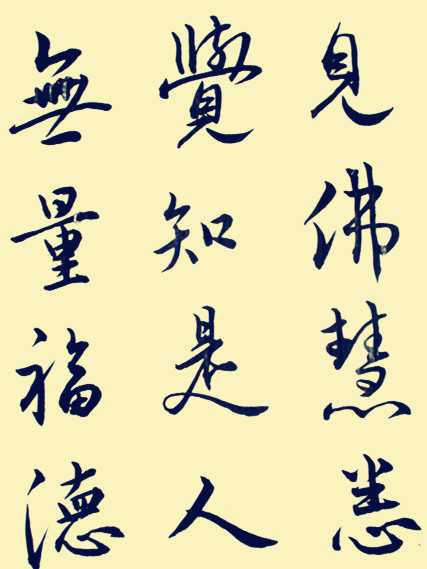 見佛慧悉
覺知是人
無量福德